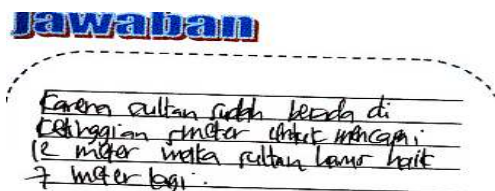 Jawaban
Karena sultan sudah berada di
ketinggian 5meter untuk mencapai
12 meter maka sultan harus naik
7 meter lagi.